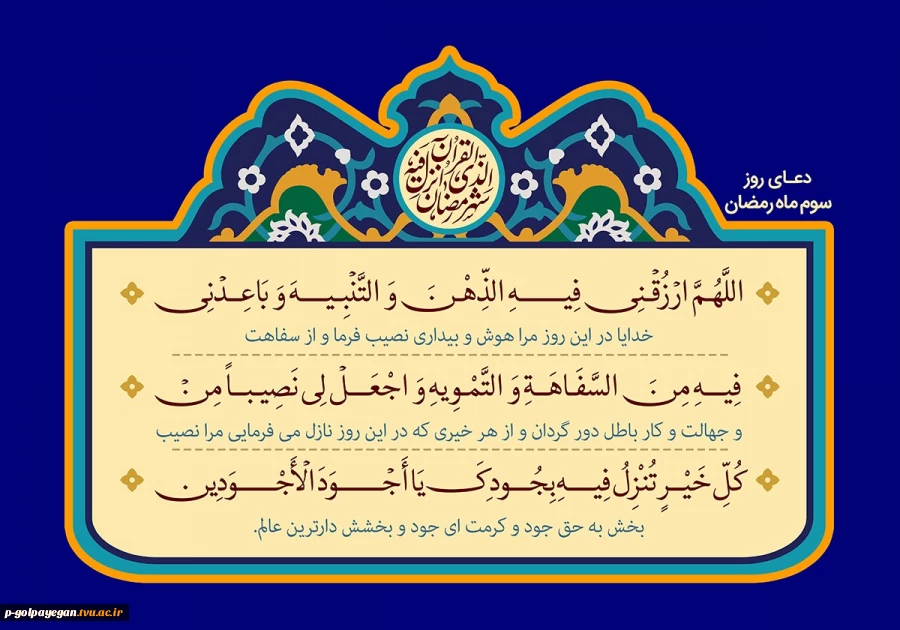 شهر رمضان الذی انزل فیه القرآن
دعـای روز
سوم ماه رمضان
اللَّهُمَّ ارْزُقْنِی فِیهِ الذِّهْنَ وَ التَّنْبِیهَ وَ بَاعِدْنِی
خدایا در این روز مرا هوش و بیداری نصیب فرما و از سفاهت
فِیهِ مِنَ السَّفَاهَةِ وَ التَّمْوِیهِ وَ اجْعَلْ لِی نَصِیباً مِنْ
و جهالت و کار باطل دور گردان و از هر خیری که در این روز نازل می فرمایی مرا نصیب
كُلِّ خَیْرٍ تُنْزِلُ فِیهِ بِجُودِکَ یَا أَجْوَدَ الْأَجْوَدِینَ
بخش به حق جود و کرمت ای جود و بخشش دارترین عالم.
p-golpayegan.tvu.ac.ir